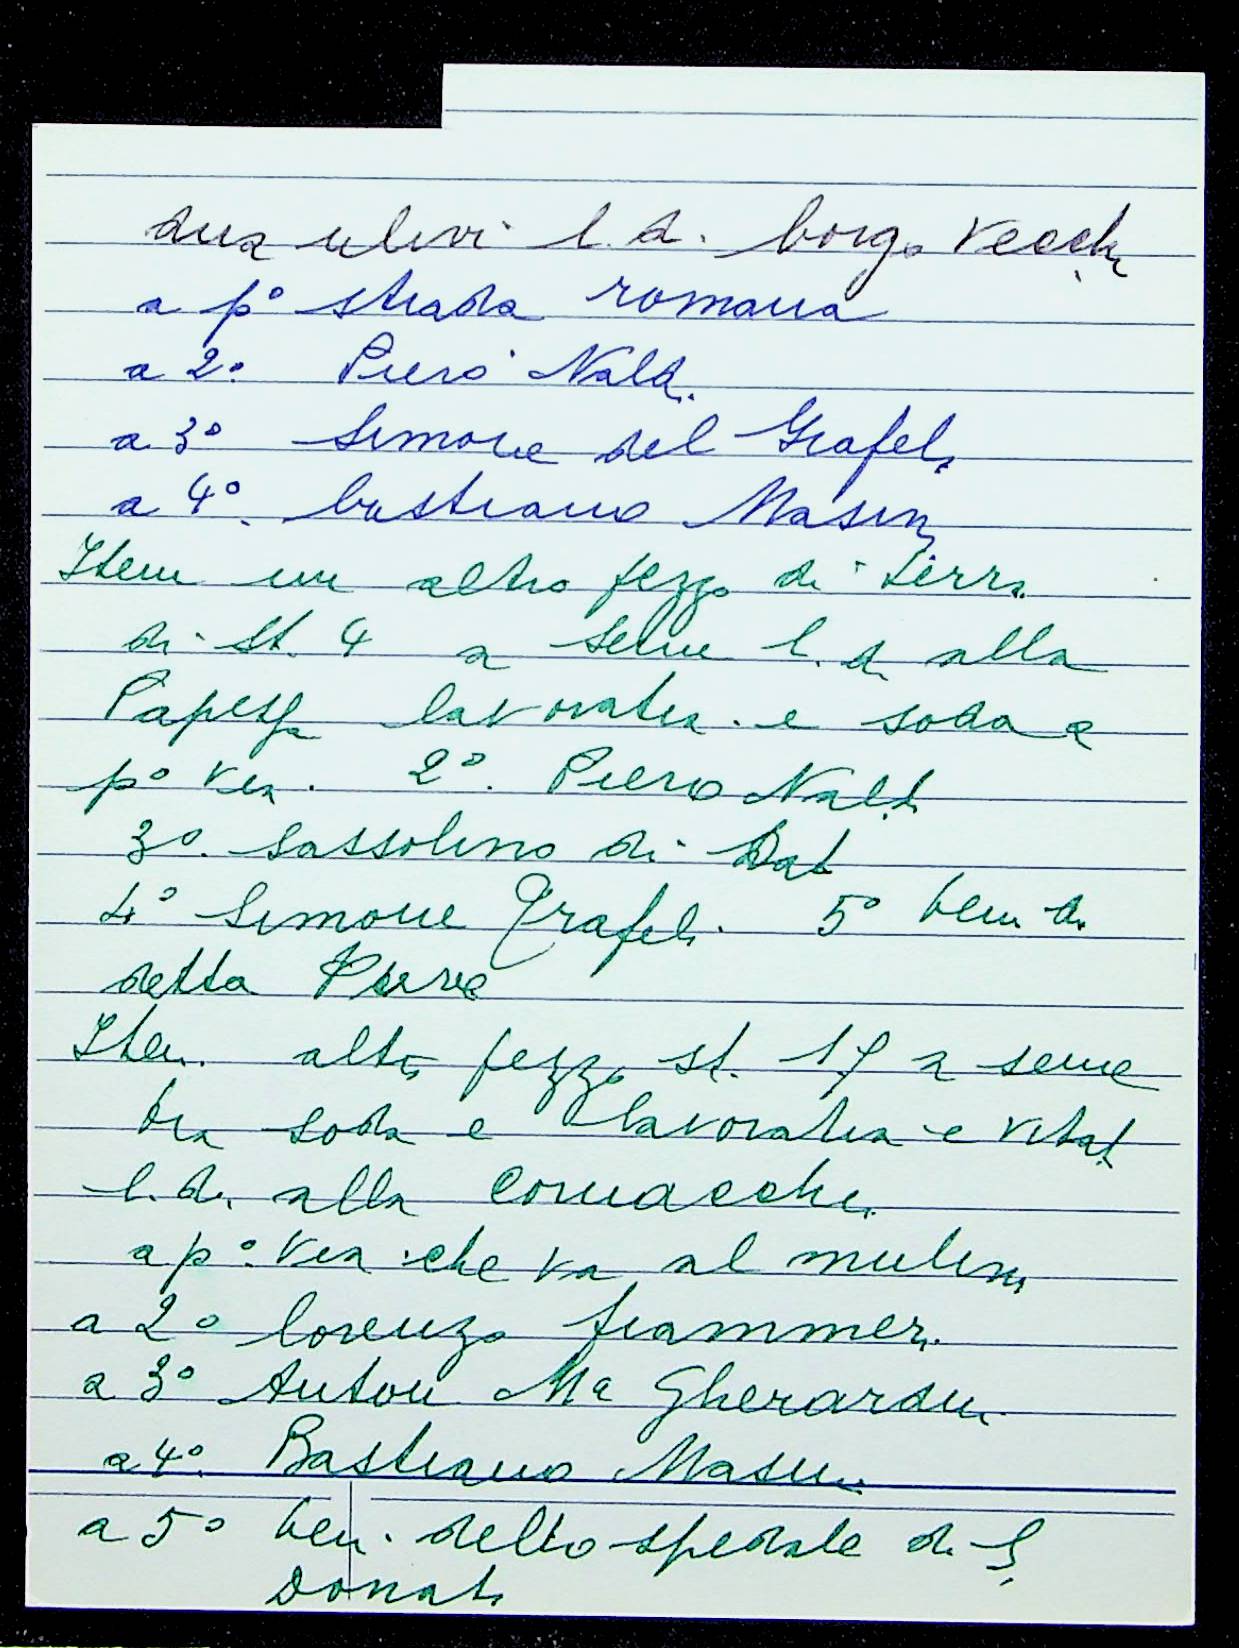 dua ulivi l.d. borgo Vecch
a p° strada romana
a 2° Piero Nald.
a 3° Simone del Grafel.
a 4° bastiano Masin
Item un altro pezzo di terra
di st. 4 a seme l.d. alla
lavoratia e soda a
p° via. 2° Piero Nald.
3° Sassolino di Dat
4° Simone Grafel. 5° beni di
detta Pieve
Item. alto pezzo st. 17 a seme
tra soda e lavoratia e vitat
l.d. alla Cornacchi.
a p° via che va al mulin
a 2° lorenzo fiammer.
a 3° Anton Ma Gherardin
a 4° Bastiano Masin
a 5° ben. dello spedale di S.
Donat.